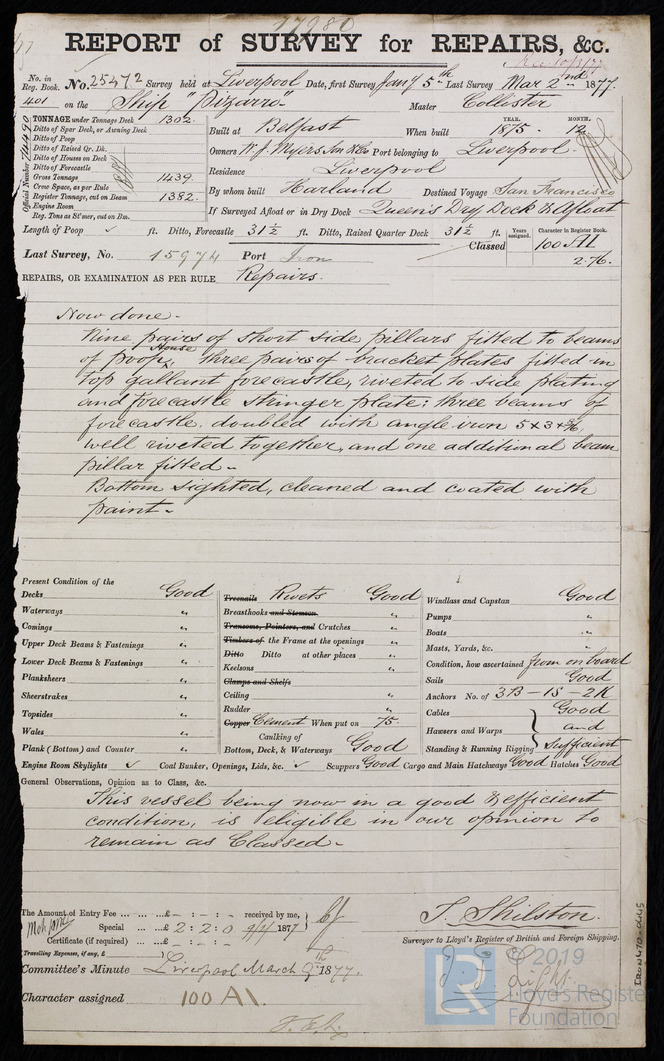 17980
REPORT of SURVEY for REPAIRS, &c.
No. in Reg. Book. No. 25472 Survey held at Liverpool Date, first Survey Jany 5th Last Survey Mar 2nd 1877.
401 on the Ship "Pizarro" Master Collister
TONNAGE under Tonnage Deck 1302.
Ditto of Spar Deck, or Awning Deck
Ditto of Poop
Ditto of Raised Qr. Dk.
Ditto of Houses on Deck
Ditto of Forecastle
Gross Tonnage 1439.
Crew Space, as per Rule
Register Tonnage, cut on Beam 1382.
Engine Room
Reg. Tons as St'mer, cut on Bm.
Official Number 74490
Built at Belfast When built YEAR. 1875 - MONTH. 12
Owners W. J. Myers Son & Co Port belonging to Liverpool.
Residence Liverpool
By whom built Harland Destined Voyage San Francisco
If Surveyed Afloat or in Dry Dock Queen's Dry Dock & Afloat
Length of Poop ✓ ft. Ditto, Forecastle 31½ ft. Ditto, Raised Quarter Deck 31½ ft.
Classed Years assigned. Character in Register Book. 100 A1 2.76.
Last Survey, No. 15974 Port Iron
REPAIRS, OR EXAMINATION AS PER RULE Repairs.
Now done -
Nine pairs of short side pillars fitted to beams
of poop House, three pairs of bracket plates fitted in
top gallant forecastle, riveted to side plating
and forecastle stringer plate; three beams of
forecastle, doubled with angle iron 5 x 3 x 6/16
well riveted together, and one additional beam
pillar fitted -
Bottom sighted, cleaned and coated with
paint -
Present Condition of the
Decks Good
Waterways "
Comings "
Upper Deck Beams & Fastenings "
Lower Deck Beams & Fastenings "
Planksheers "
Sheerstrakes "
Topsides "
Wales "
Plank (Bottom) and Counter "
Treenails Rivets Good
Breasthooks and Stemson "
Transoms, Pointers, and Crutches "
Timbers of the Frame at the openings "
Ditto Ditto at other places "
Keelsons "
Clamps and Shelfs
Ceiling "
Rudder "
Copper Cement When put on 75
Caulking of
Bottom, Deck, & Waterways Good
Windlass and Capstan Good
Pumps "
Boats "
Masts, Yards, &c. "
Condition, how ascertained from on board
Sails Good
Anchors No. of 3B - 1S - 2K
Cables Good
Hawsers and Warps and
Standing & Running Rigging Sufficient
Engine Room Skylights ✓ Coal Bunker, Openings, Lids, &c. ✓ Scuppers Good Cargo and Main Hatchways Good Hatches Good
General Observations, Opinion as to Class, &c.
This vessel being now in a good & efficient
condition, is eligible in our opinion to
remain as Classed -
The Amount of Entry Fee ... ... £ - : - : - received by me,
Special ... ... £ 2 : 2 : 0 9/3/ 1877
Certificate (if required) ... £ - : - : -
Travelling Expenses, if any, £
T. Shilston.
Surveyor to Lloyd's Register of British and Foreign Shipping.
J. T. Light.
Committee's Minute Liverpool March 9th 1877.
Character assigned 100 A1.
IRON470-0445
© 2019
Lloyd's Register
Foundation